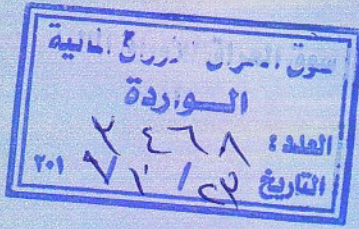 سوق العراق للأوراق المالية
الواردة
العدد: ٣٤٦٨
التاريخ ٢٣ / ١٠ / ٢٠١